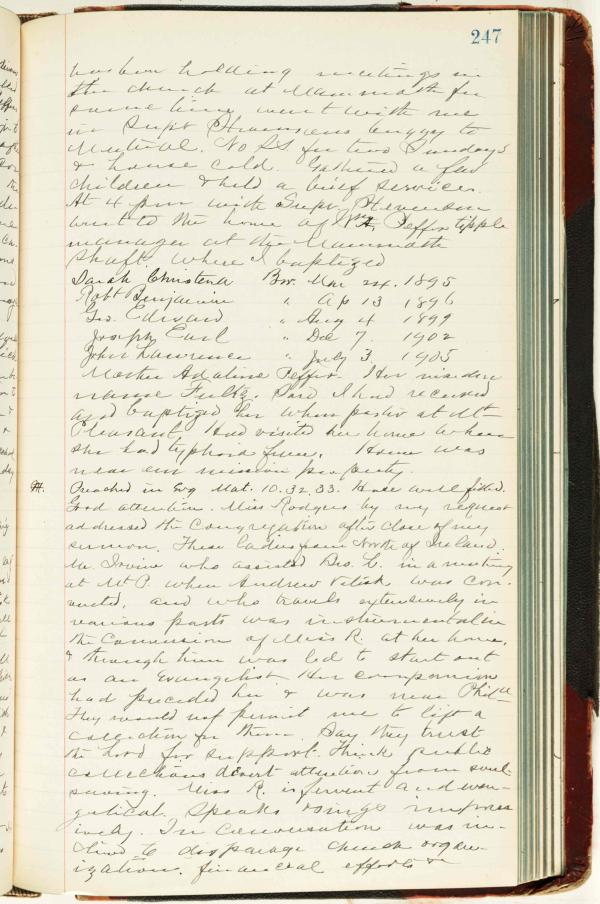 247
has been holding meetings in
the church at Mammoth for
some time went with me
in Supt Stevensons buggy to
Mutual. No S.S. for two Sundays
& house cold. Gathered a few
children & held a brief service.
At 4 pm with Supt Stevenson
went to the home of Wm Peffer tipple
manager at the Mammoth
Shaft where I baptized
Sarah Christena Bor. Mar 24. 1895
Robt Benjamin " Ap 13 1896
Geo. Edward " Aug 4 1899
Joseph Earl " Dec 7. 1902
John Lawrence " July 3. 1905
Mother Adaline Peffer. Her maiden
name Fultz. Said I had received
and baptized her when pastor at Mt
Pleasant. Had visited her home when
she had typhoid fever. Home was
near our mission property.
Preached in Evg Mat. 10.32.33. House well filled.
Good attention. Miss Rodgers by my request
addressed the congregation after close of my
sermon. These ladies from North of Ireland.
Mr. Irvine who assisted Bro. L. in a meeting
at Mt P. when Andrew was con-
verted, and who travels extensively in
various parts was instrumental in
the conversion of Miss R. at her home,
& through him was led to start out
as an Evangelist. Her companion
had preceded her & was near Phila
They would not permit me to lift a
collection for them. Say they trust
the Lord for support. Think public
collections divert attention from soul
saving. Miss R. is fervent and evan-
gelical. Speaks & sings impress
ively. In conversation was in-
clined to disparage church organ-
ization, financial efforts &